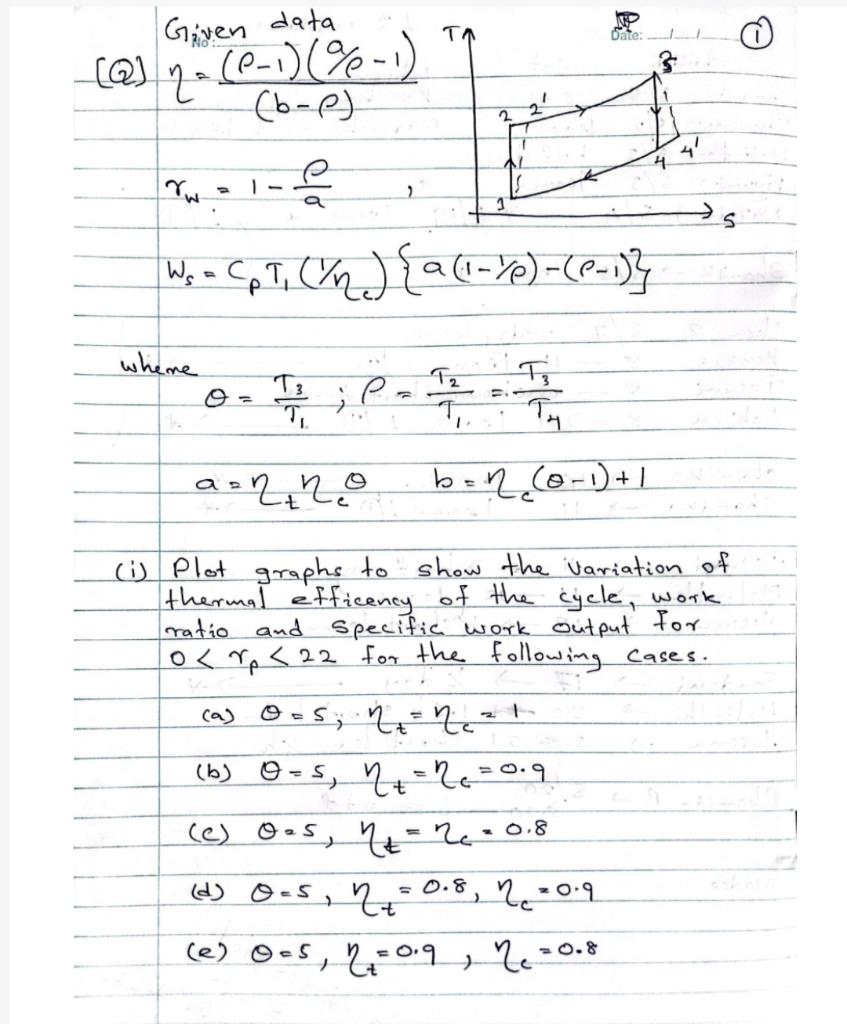 Given data
No :
Date: / /
①
[Q] η = (ρ-1)(a/ρ -1) / (b-ρ)
T
2 2' 3
1 4 4'
S
r_w = 1 - ρ/a ,
W_s = C_p T_1 (1/η_c) {a(1-1/ρ)-(ρ-1)}
where
θ = T_3/T_1 ; ρ = T_2/T_1 = T_3/T_4
a = η_t η_c θ b = η_c (θ-1)+1
(i) Plot graphs to show the variation of
thermal efficency of the cycle, work
ratio and specific work output for
0 < r_p < 22 for the following cases.
(a) θ = 5, η_t = η_c = 1
(b) θ = 5, η_t = η_c = 0.9
(c) θ = 5, η_t = η_c = 0.8
(d) θ = 5, η_t = 0.8, η_c = 0.9
(e) θ = 5, η_t = 0.9, η_c = 0.8